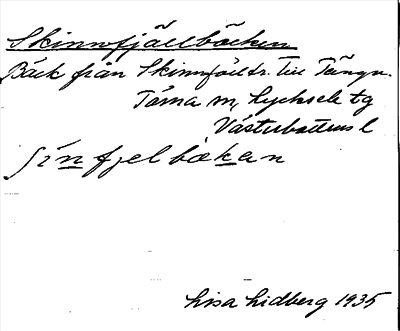 Skinnfjällbäcken
Bäck från Skinnfjällstr. till Tängv.
Tärna sn, Lycksele tg
Västerbottens l
ʃinfjelbækan
Lisa Lidberg 1935